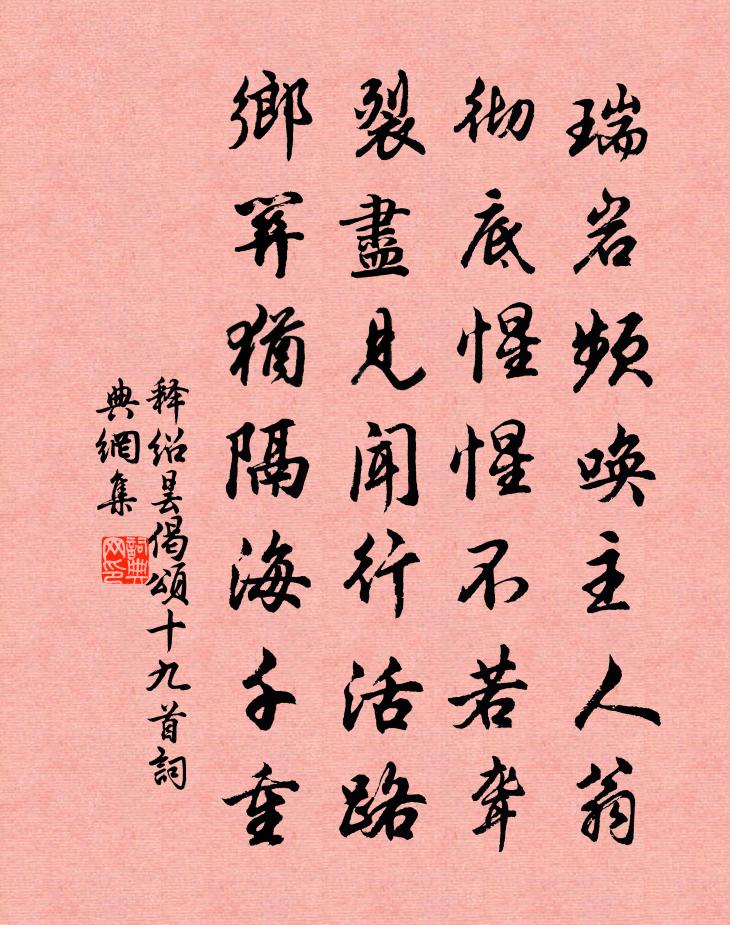 瑞岩频唤主人翁
彻底惺惺不若聋
裂盡見闻行活路
鄉关猶隔海千重
释绍昙偈颂十九首詞
典網集